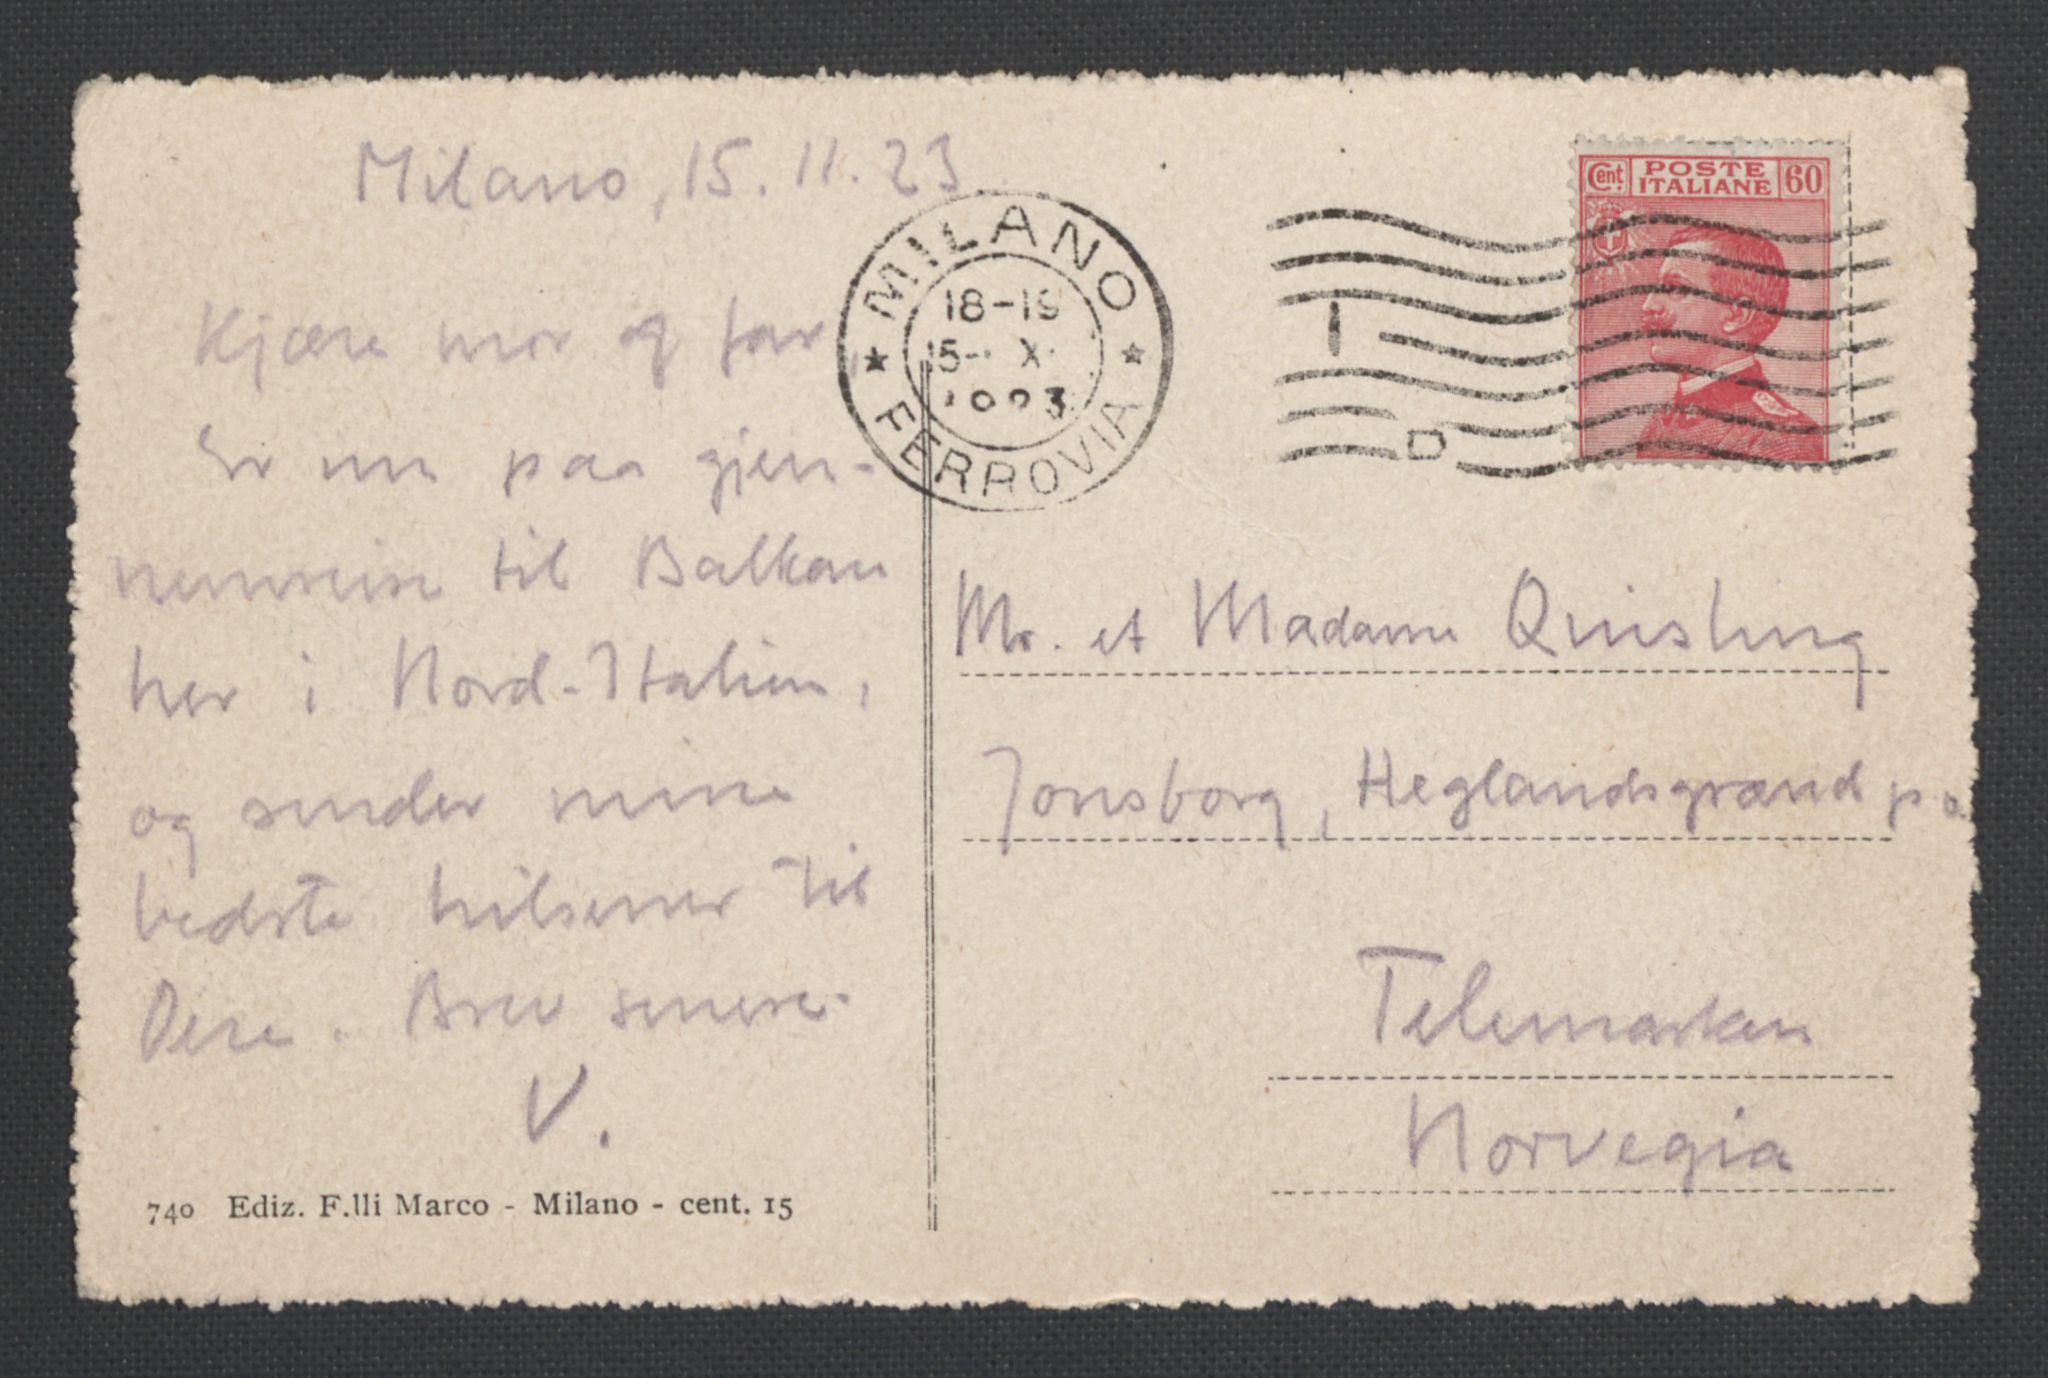 Milano, 15. 11. 23
Kjære mor og far,
Er nu paa gjen-
nemreise til Balkan
her i Nord-Italien,
og sender mine
bedste hilsener til
Dere. Brev senere.
V.
740 Ediz. F.lli Marco - Milano - cent. 15
MILANO
18-19
15- X
1923
FERROVIA
Cent. POSTE ITALIANE 60
Mr. et Madame Quisling
Jonsborg, Heglandsgrænd pa
Telemarken
Norvegia